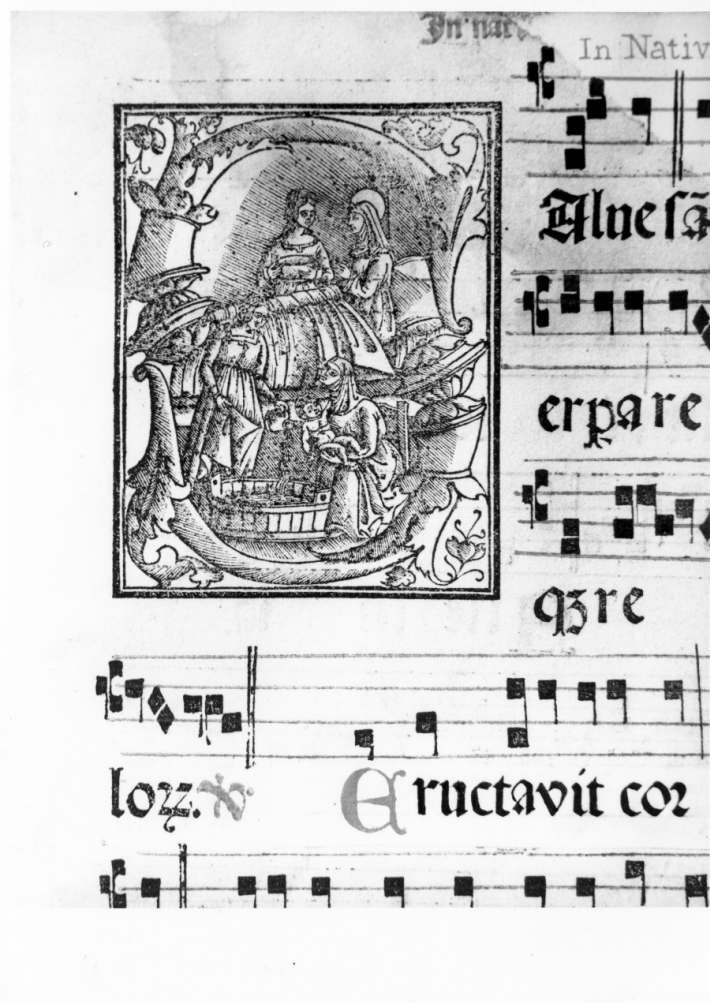 In nat
In Nativ
Alue sā
er pa re
qꝫ re
loꝝ. ℣.
Eructavit cor